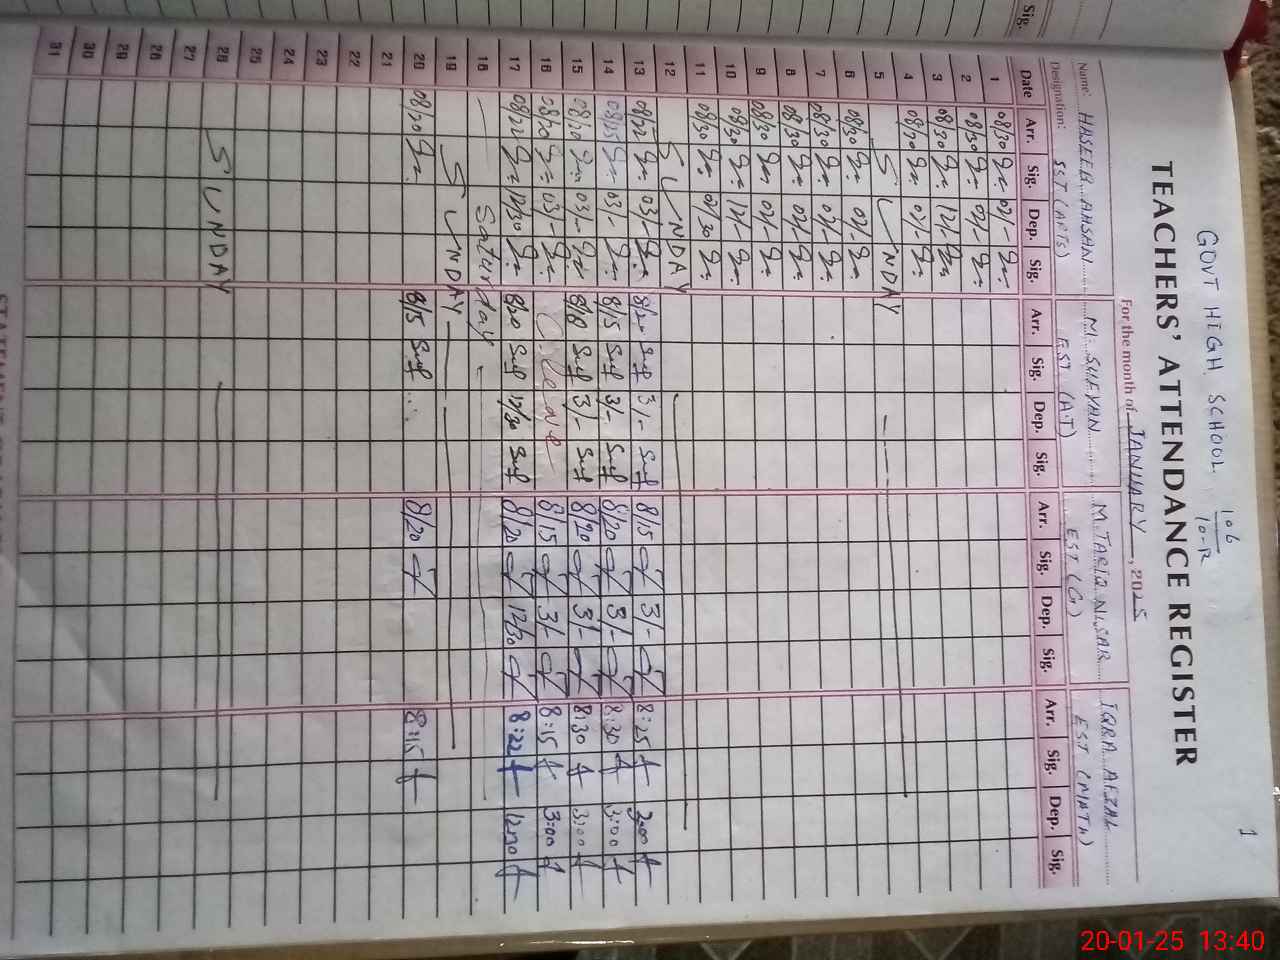 1
GOVT HIGH SCHOOL 106/10-R
TEACHERS' ATTENDANCE REGISTER
For the month of JANUARY, 2025
Name: HASEEB AHSAN M. SUFYAN M. TARIQ NISAR IQRA AFZAL
Designation: SST (ARTS) EST (A.T) EST (G) EST (MATH)
Date Arr. Sig. Dep. Sig. Arr. Sig. Dep. Sig. Arr. Sig. Dep. Sig. Arr. Sig. Dep. Sig.
1 08/30 02/-
2 08/30 02/-
3 08/30 12/-
4 08/30 02/-
5 SUNDAY
6 08/30 02/-
7 08/30 02/-
8 08/30 02/-
9 08/30 02/-
10 08/30 12/-
11 08/30 02/30
12 SUNDAY
13 08/22 03/- 8/20 3/- 8/15 3/- 8:25 3:00
14 08/15 03/- 8/15 3/- 8/20 3/- 8:30 3:00
15 08/20 03/- 8/18 3/- 8/20 3/- 8:30 3:00
16 08/20 03/- C. leave 8/15 3/- 8:15 3:00
17 08/22 12/30 8/20 12/30 8/20 12/30 8:22 12:30
18 Saturday
19 SUNDAY
20 08/20 8/15 8/20 8:15
21
22
23
24
25
26 SUNDAY
27
28
29
30
31
Sig.
20-01-25 13:40